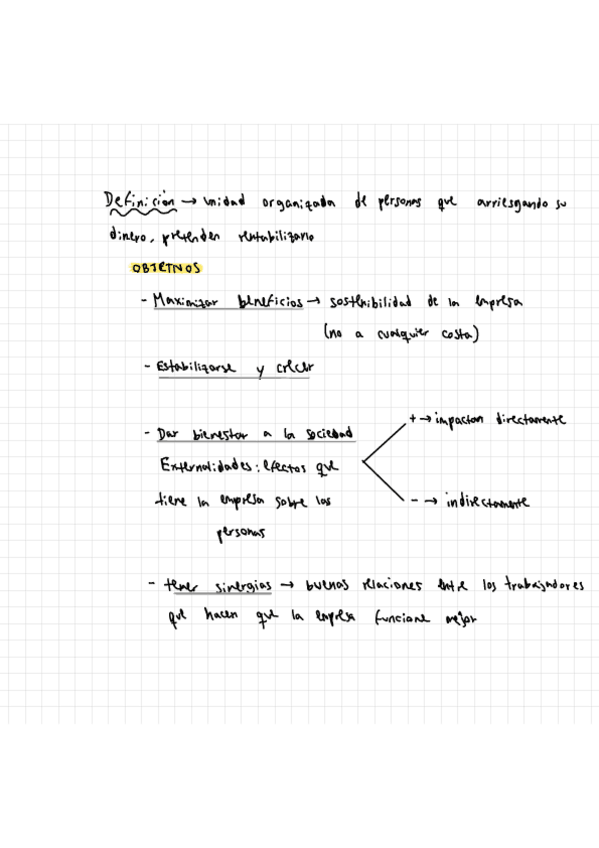 Definición → unidad organizada de personas que arriesgando su
dinero, pretenden rentabilizarlo
OBJETIVOS
- Maximizar beneficios → sostenibilidad de la empresa
(no a cualquier costa)
- Estabilizarse y crecer
- Dar bienestar a la sociedad
Externalidades: efectos que
tiene la empresa sobre las
personas
+ → impactan directamente
- → indirectamente
- tener sinergias → buenas relaciones entre los trabajadores
que hacen que la empresa funcione mejor